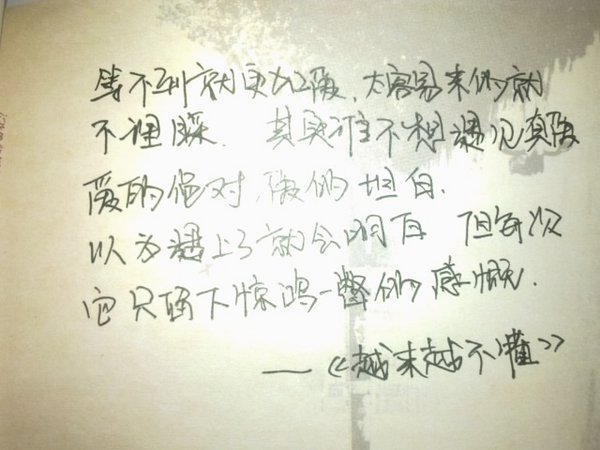 得不到就更加爱,太容易来的就
不理睬. 其实谁不想遇见真爱
爱的绝对,爱的坦白.
以为遇上了就会明白 但每次
它只留下惊鸿一瞥的感慨.
—《越来越不懂》